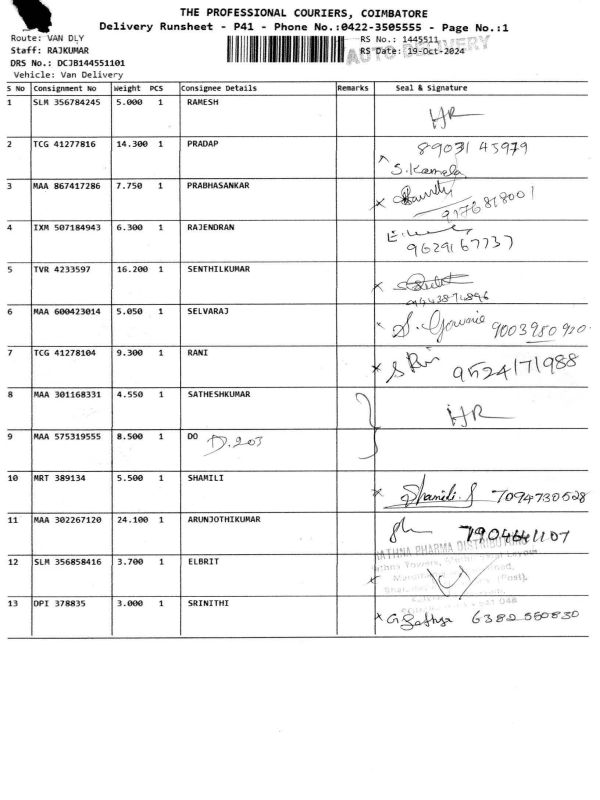 THE PROFESSIONAL COURIERS, COIMBATORE
Delivery Runsheet - P41 - Phone No.:0422-3505555 - Page No.:1
Route: VAN DLY
RS No.: 1445511
AUTO DELIVERY
Staff: RAJKUMAR
RS Date: 19-Oct-2024
DRS No.: DCJB144551101
Vehicle: Van Delivery
S No Consignment No Weight PCS Consignee Details Remarks Seal & Signature
1 SLM 356784245 5.000 1 RAMESH HR
2 TCG 41277816 14.300 1 PRADAP 89031 45979
S. Kamala
3 MAA 867417286 7.750 1 PRABHASANKAR
4 IXM 507184943 6.300 1 RAJENDRAN
9629167737
5 TVR 4233597 16.200 1 SENTHILKUMAR
6 MAA 600423014 5.050 1 SELVARAJ
7 TCG 41278104 9.300 1 RANI 9524171988
8 MAA 301168331 4.550 1 SATHESHKUMAR HR
9 MAA 575319555 8.500 1 DO D.203
10 MRT 389134 5.500 1 SHAMILI Shamili. S 7094730528
11 MAA 302267120 24.100 1 ARUNJOTHIKUMAR
12 SLM 356858416 3.700 1 ELBRIT
13 DPI 378835 3.000 1 SRINITHI G. Sathya 6382 550830